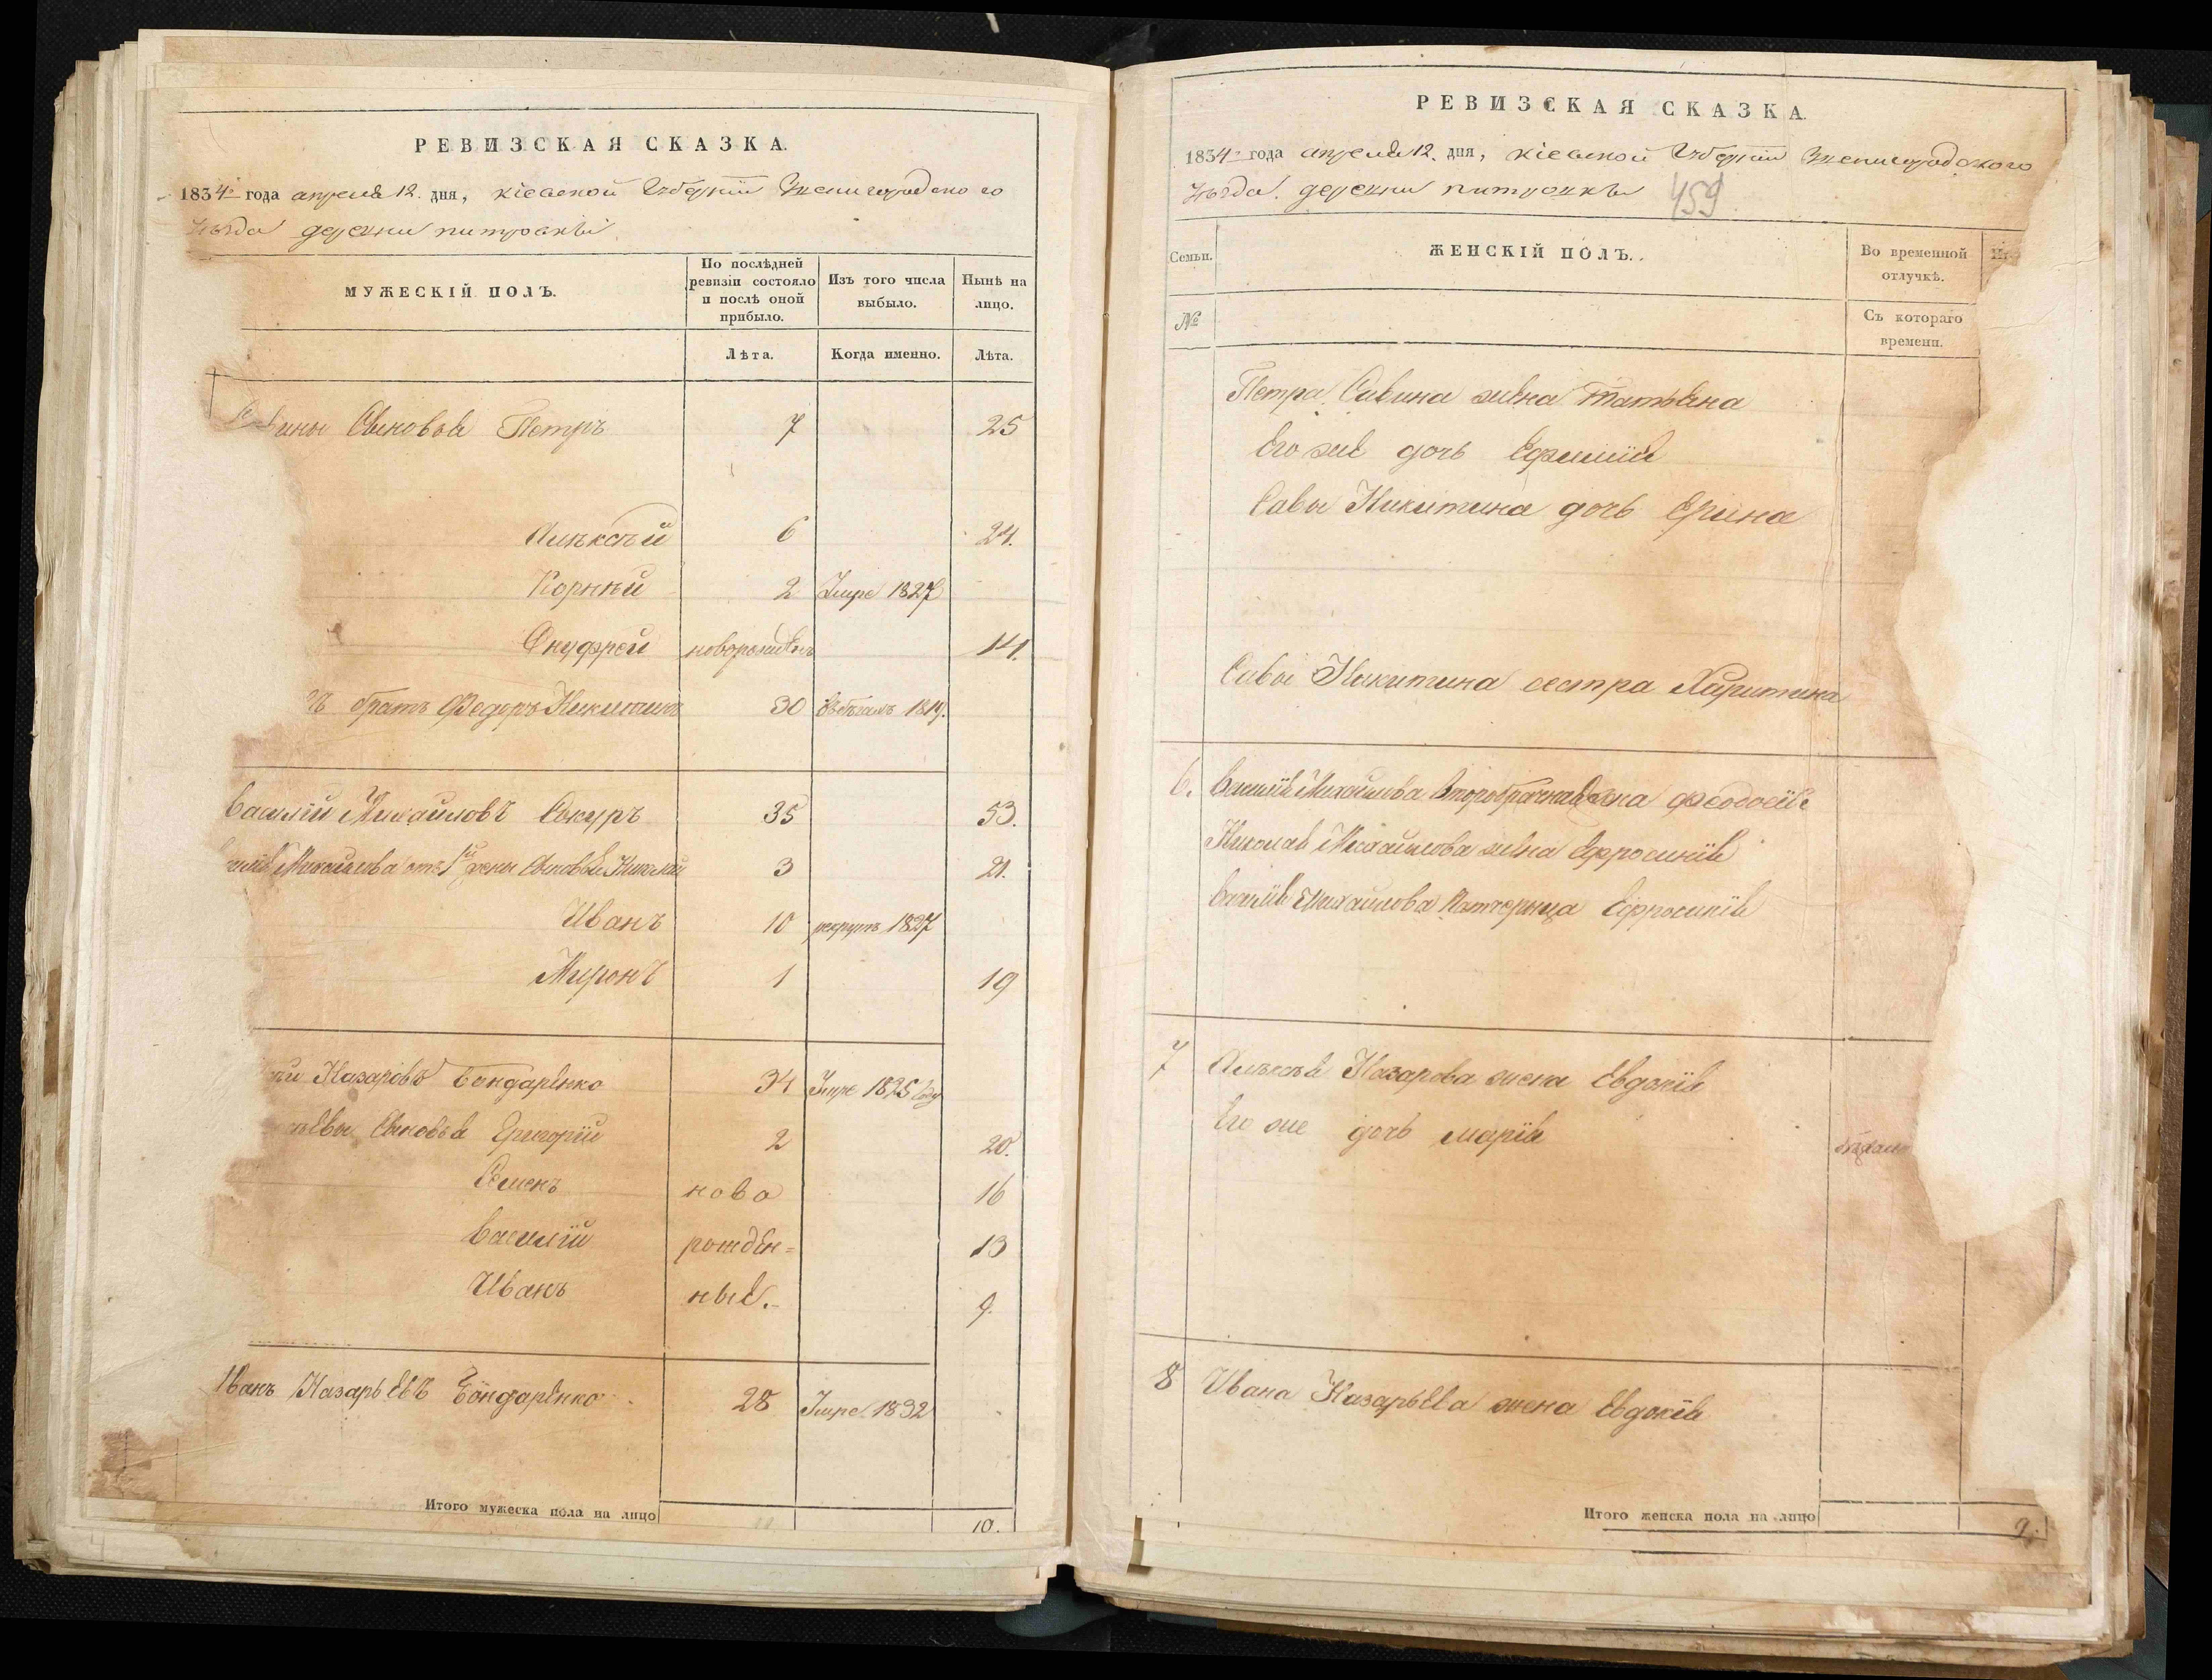 РЕВИЗСКАЯ СКАЗКА.
1834 года апреля 12. дня, Кіевской Губерніи Звенигородского
уезда деревни питровки
МУЖЕСКІЙ ПОЛЪ.
По послѣдней ревизіи состояло и послѣ оной прибыло.
Изъ того числа выбыло.
Нынѣ на лицо.
Лѣта.
Когда именно.
Лѣта.
Сыновья Петръ 7 25
Алѣксѣй 6 24.
Корнѣй 2 Умре 1827
Онуфрей новорожден 14.
братъ Федоръ Никитинъ 30 въ бѣгахъ 1819.
Василій Михайловъ Сокуръ 35 53.
Михайлова отъ 1й жены Сыновья Николай 3 21.
Иванъ 10 рекрутъ 1827
Миронъ 1 19
Назаровъ Бондаренко 34 Умре 1825 году
Сыновья Григорій 2 20.
Семенъ ново 16
Василій рожден= 13
Иванъ ные. 9.
Иванъ Назарьевъ Бондаренко 28 Умре 1832
Итого мужеска пола на лицо 10.
РЕВИЗСКАЯ СКАЗКА.
1834 года апреля 12. дня, Кіевской Губерніи Звенигородского
уезда. деревни питровки 459
Семьи.
ЖЕНСКІЙ ПОЛЪ.
Во временной отлучкѣ.
№
Съ котораго времени.
Петра Савина жена Татьяна
Его же дочь Ефимія
Савы Никитина дочь Ерина
Савы Никитина сестра Харитина
6. Василія Михайлова второбрачная жена Феодосія
Николая Михайлова жена Ефросинія
Василія Михайлова Патчерица Ефросинія
7 Алѣксѣя Назарова жена Евдокія
Его же дочь марія
8 Ивана Назарьева жена Евдокія
Итого женска пола на лицо 9.